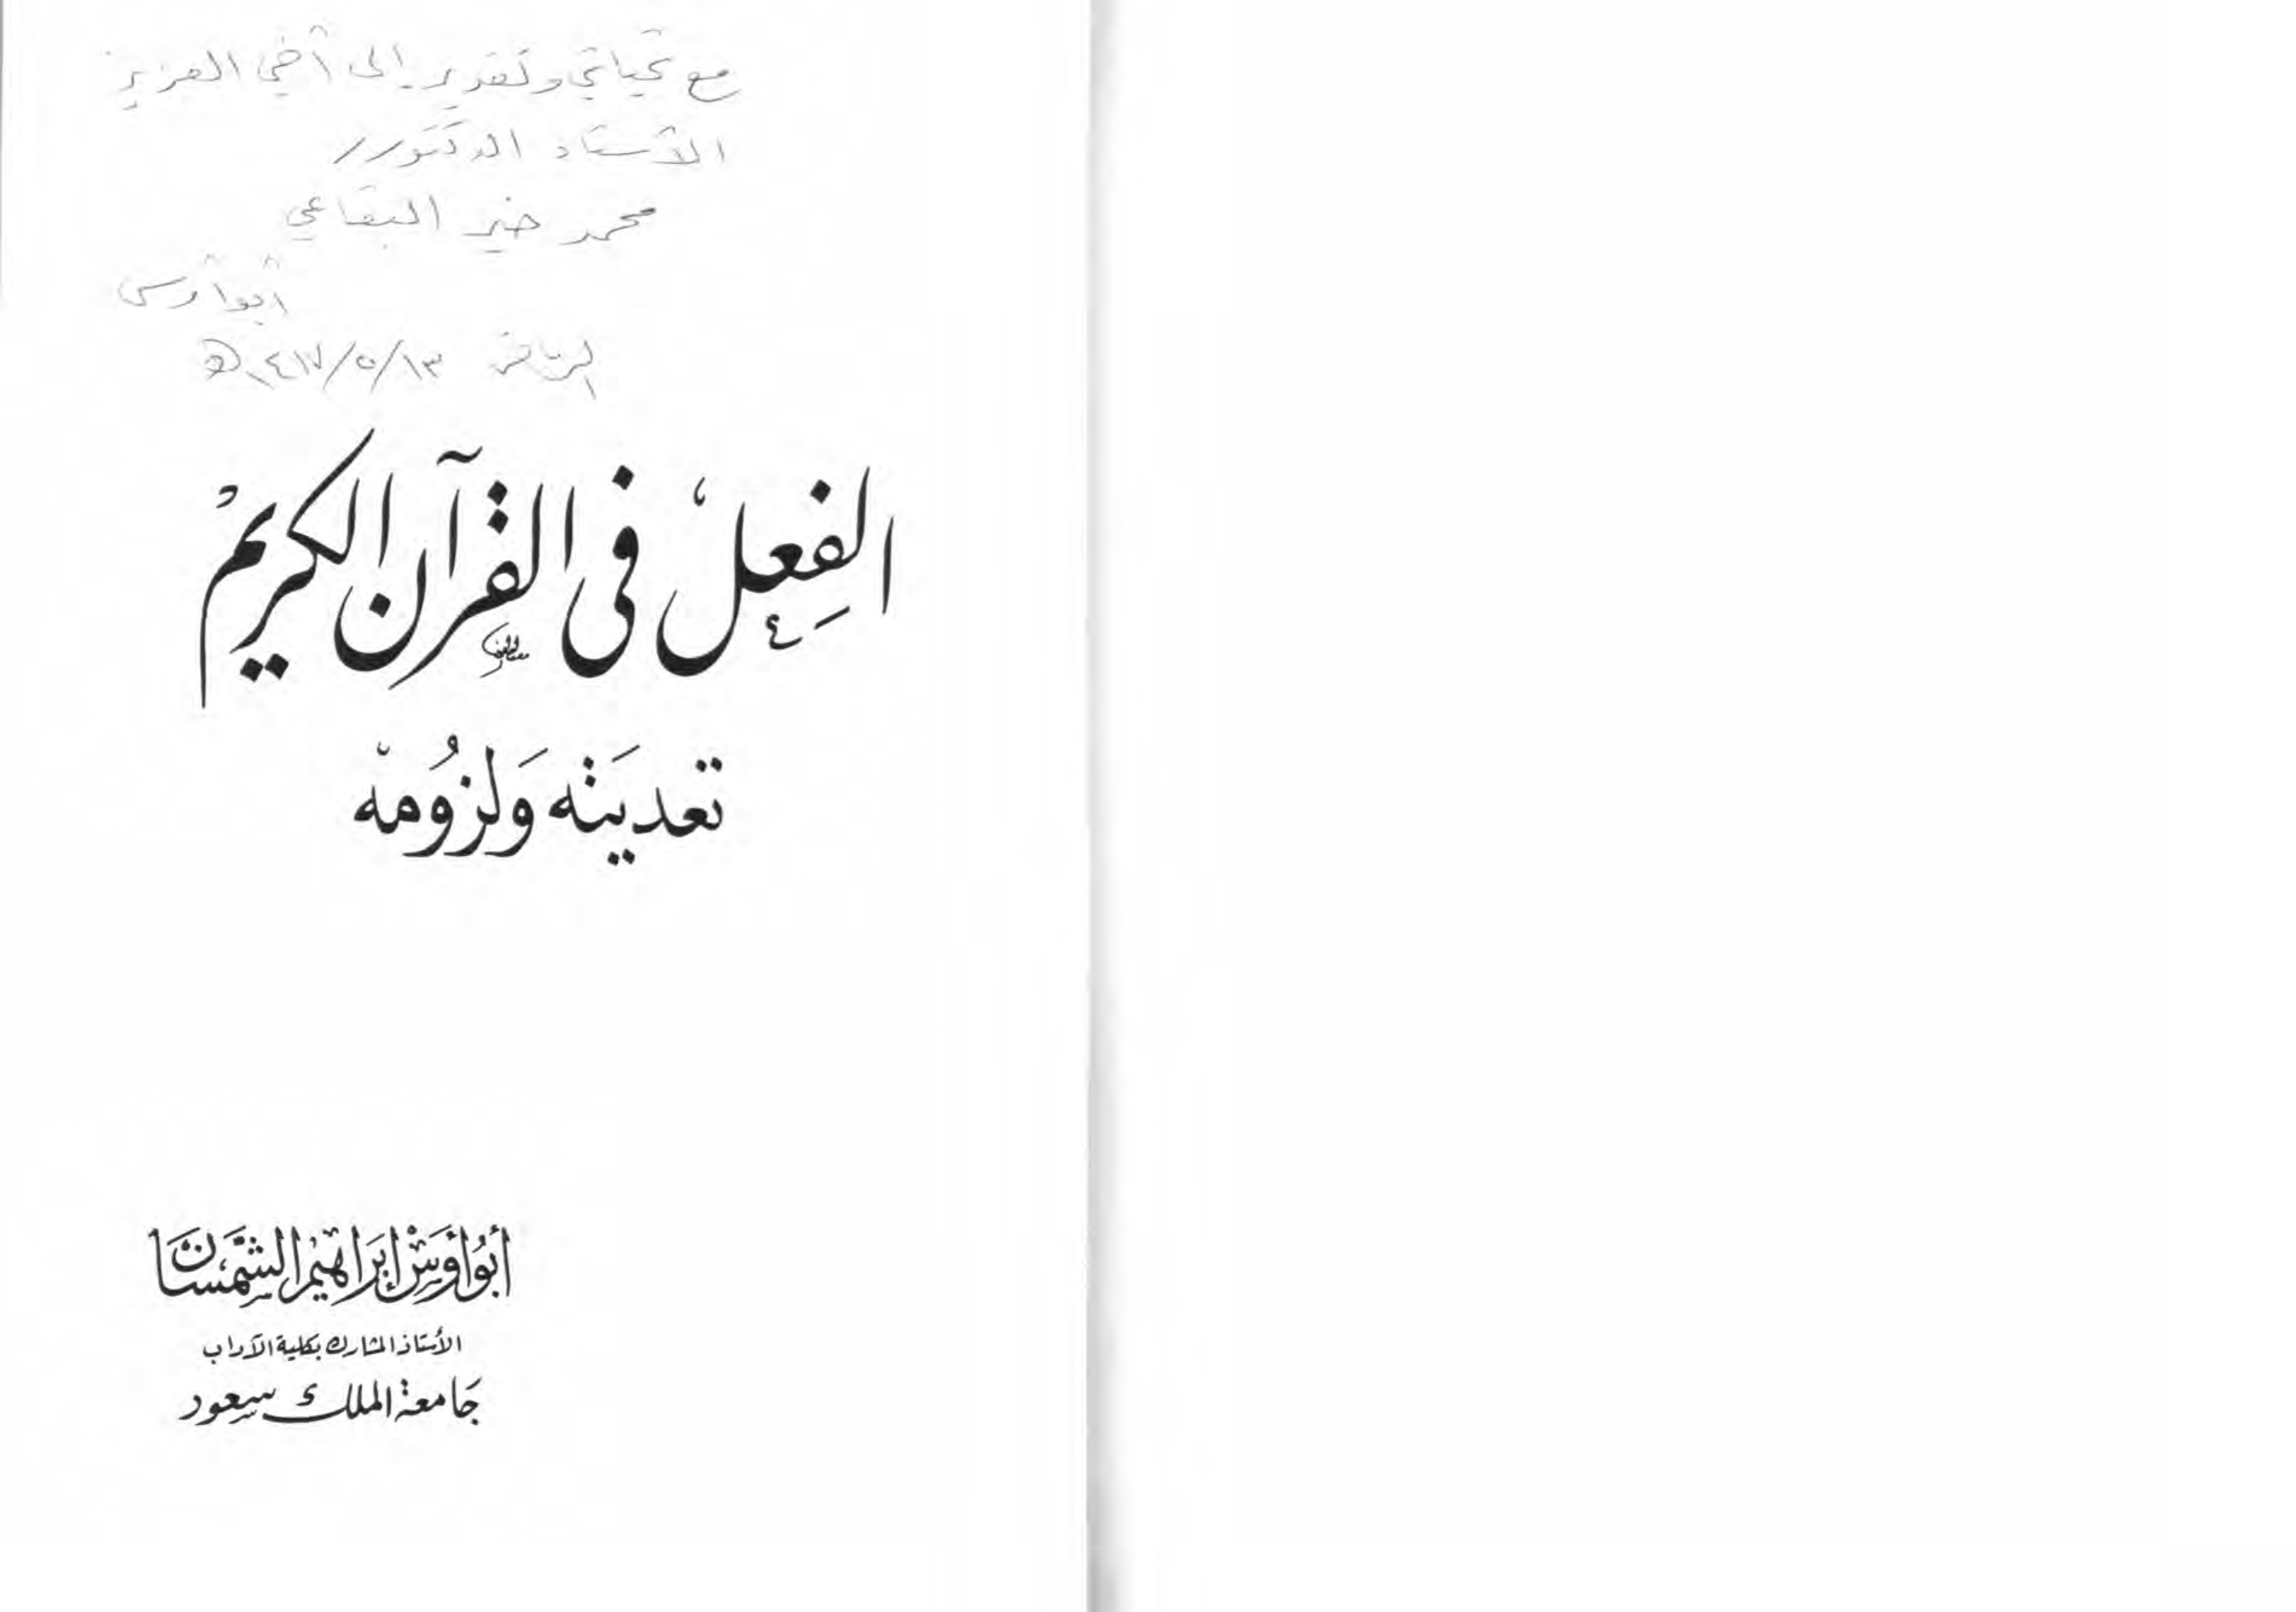 مع تحياتي وتقديري إلى أخي العزيز
الأستاذ الدكتور/
محمد خير البقاعي
أبو أوس
الرياض ١٤١٧/٥/١٣هـ
الفِعلُ فى القرآن الكريمْ
تعديَته وَلزُومهْ
أبُو أوَسْ إبَراهيْم الشَّمْسَان
الأستاذ المشارك بكلية الآداب
جَامعة الملك سعود